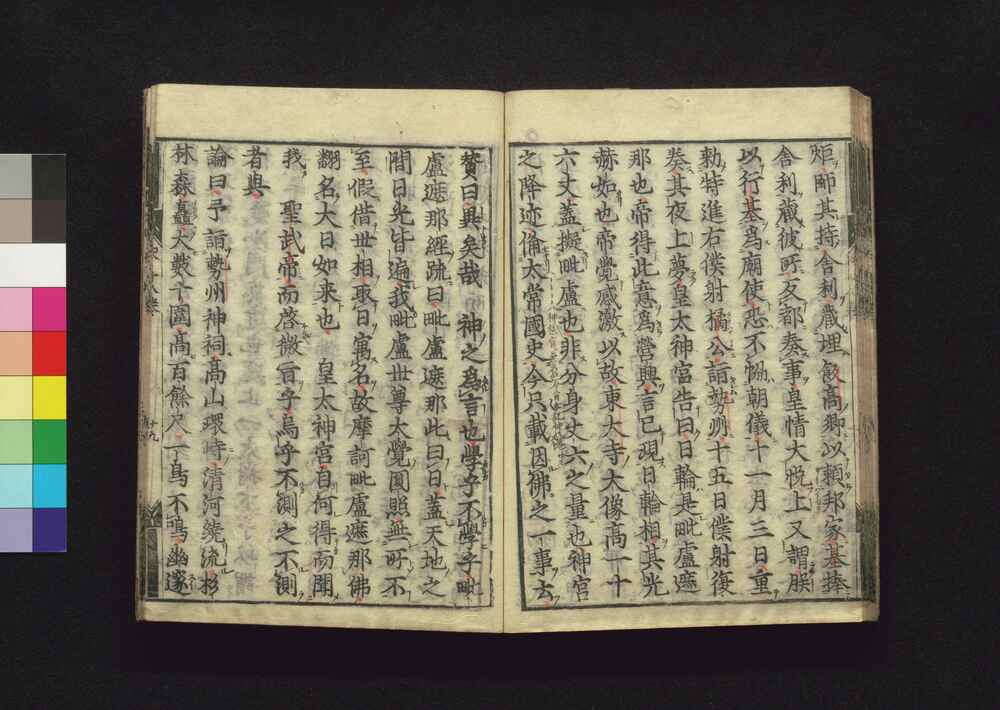 炬師其持舎利藏埋飯高郷以頼邦家基捧
舎利藏彼所友都奏事皇情大悦上又謂朕
以行基爲廟使恐不恊朝儀十一月三日重
勅特進右僕射橘公詣勢州十五日僕射復
奏其夜上夢皇太神宮告曰日輪是毗盧遮
那也帝得此意爲營興言已現日輪相其光
赫如也帝覺感激以故東大寺大像高一十
六丈蓋擬毗盧也非分身丈六之量也神宮
之降迹備太常國史今只載因佛之一事去
賛曰異矣哉神之爲言也學乎不學乎毗
盧遮那經疏曰毗盧遮那此曰日蓋天地之
間日光皆遍我毗盧世尊大覺圓照無所不
至假借世相取日寓名故摩訶毗盧遮那佛
翻名大日如来也皇太神宮自何得而開
我聖武帝而啓微旨乎烏乎不測之不測
者與
論曰予詣勢州神祠高山環峙清河繞流杉
林森矗大數十圍高百餘尺一鳥不鳴幽邃
十九